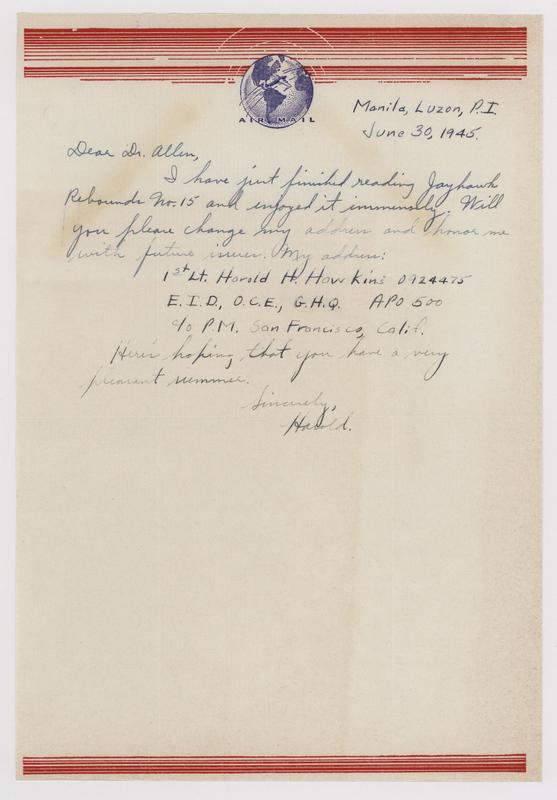 AIR MAIL
Manila, Luzon, P.I.
June 30, 1945.
Dear Dr. Allen,
I have just finished reading Jayhawk
Rebounds No. 15 and enjoyed it immensely. Will
you please change my address and honor me
with future issues. My address:
1st Lt. Harold H. Hawkins 0924475
E.I.D., O.C.E., G.H.Q. APO 500
c/o P.M. San Francisco, Calif.
Here's hoping that you have a very
pleasant summer.
Sincerely,
Harold.